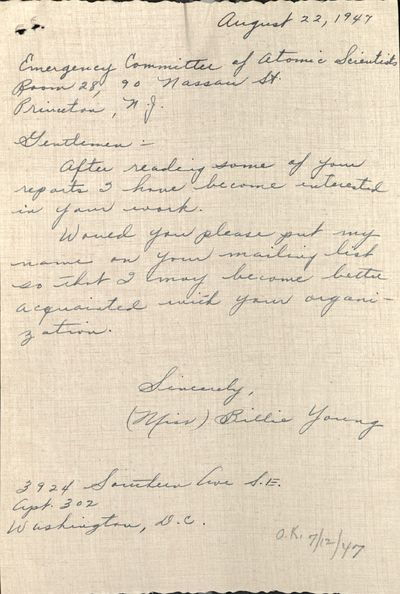 August 22, 1947
Emergency Committee of Atomic Scientists
Room 28, 90 Nassau St.
Princeton, N.J.
Gentlemen:-
After reading some of your
reports I have become interested
in your work.
Would you please put my
name on your mailing list
so that I may become better
acquainted with your organi-
zation.
Sincerely,
(Miss) Billie Young
3924 Southern Ave S.E.
Apt. 302
Washington, D.C.
O.K. 7/12/47